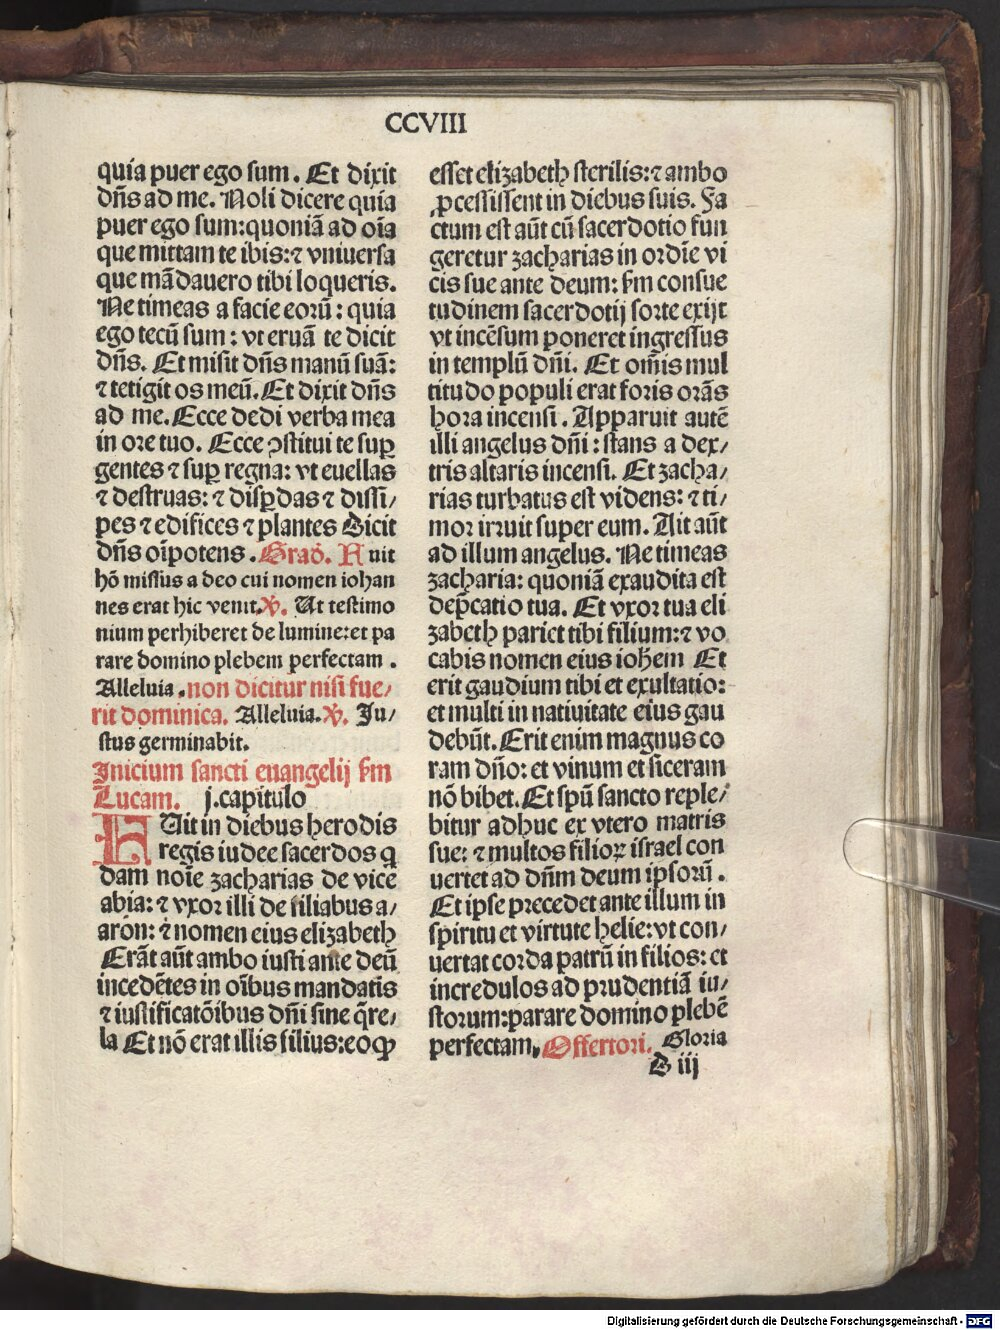 CCVIII
quia puer ego sum. Et dixit
dn̄s ad me. Noli dicere quia
puer ego sum:quoniā ad oīa
que mittam te ibis:⁊ vniuersa
que mādauero tibi loqueris.
Ne timeas a facie eorū: quia
ego tecū sum: vt eruā te dicit
dn̄s. Et misit dn̄s manū suā:
⁊ tetigit os meū. Et dixit dn̄s
ad me. Ecce dedi verba mea
in ore tuo. Ecce ꝯstitui te suꝑ
gentes ⁊ suꝑ regna: vt euellas
⁊ destruas: ⁊ disꝑdas ⁊ dissi/
pes ⁊ edifices ⁊ plantes Dicit
dn̄s oīpotens. Grad. Fuit
hō missus a deo cui nomen iohan
nes erat hic venit. ℣. Ut testimo
nium perhiberet de lumine:et pa
rare domino plebem perfectam.
Alleluia. non dicitur nisi fue/
rit dominica. Alleluia. ℣. Iu/
stus germinabit.
Inicium sancti euangelij ẜm
Lucam. j.capitulo
FUit in diebus herodis
regis iudee sacerdos q
dam noīe zacharias de vice
abia: ⁊ vxor illi de filiabus a/
aron: ⁊ nomen eius elizabeth
Erāt aūt ambo iusti ante deū
incedētes in oībus mandatis
⁊ iustificatōibus dn̄i sine q̄re/
la Et nō erat illis filius:eo qꝫ
esset elizabeth sterilis:⁊ ambo
ꝓcessissent in diebus suis. Fa
ctum est aūt cū sacerdotio fun
geretur zacharias in ordīe vi
cis sue ante deum: ẜm consue
tudinem sacerdotij sorte exijt
vt incēsum poneret ingressus
in templū dn̄i. Et om̄is mul
titudo populi erat foris orās
hora incensi. Apparuit autē
illi angelus dn̄i: stans a dex/
tris altaris incensi. Et zacha/
rias turbatus est videns: ⁊ ti/
mor irruit super eum. Ait aūt
ad illum angelus. Ne timeas
zacharia: quoniā exaudita est
dep̄catio tua. Et vxor tua eli
zabeth pariet tibi filium:⁊ vo
cabis nomen eius ioh̄em Et
erit gaudium tibi et exultatio:
et multi in natiuitate eius gau
debūt. Erit enim magnus co
ram dn̄o: et vinum et siceram
nō bibet. Et spū sancto reple/
bitur adhuc ex vtero matris
sue: ⁊ multos filioꝝ israel con
uertet ad dn̄m deum ipsorū.
Et ipse precedet ante illum in
spiritu et virtute helie:vt con/
uertat corda patrū in filios: et
incredulos ad prudentiā iu/
storum:parare domino plebē
perfectam. Offertori. Gloria
D iij
Digitalisierung gefördert durch die Deutsche Forschungsgemeinschaft - DFG